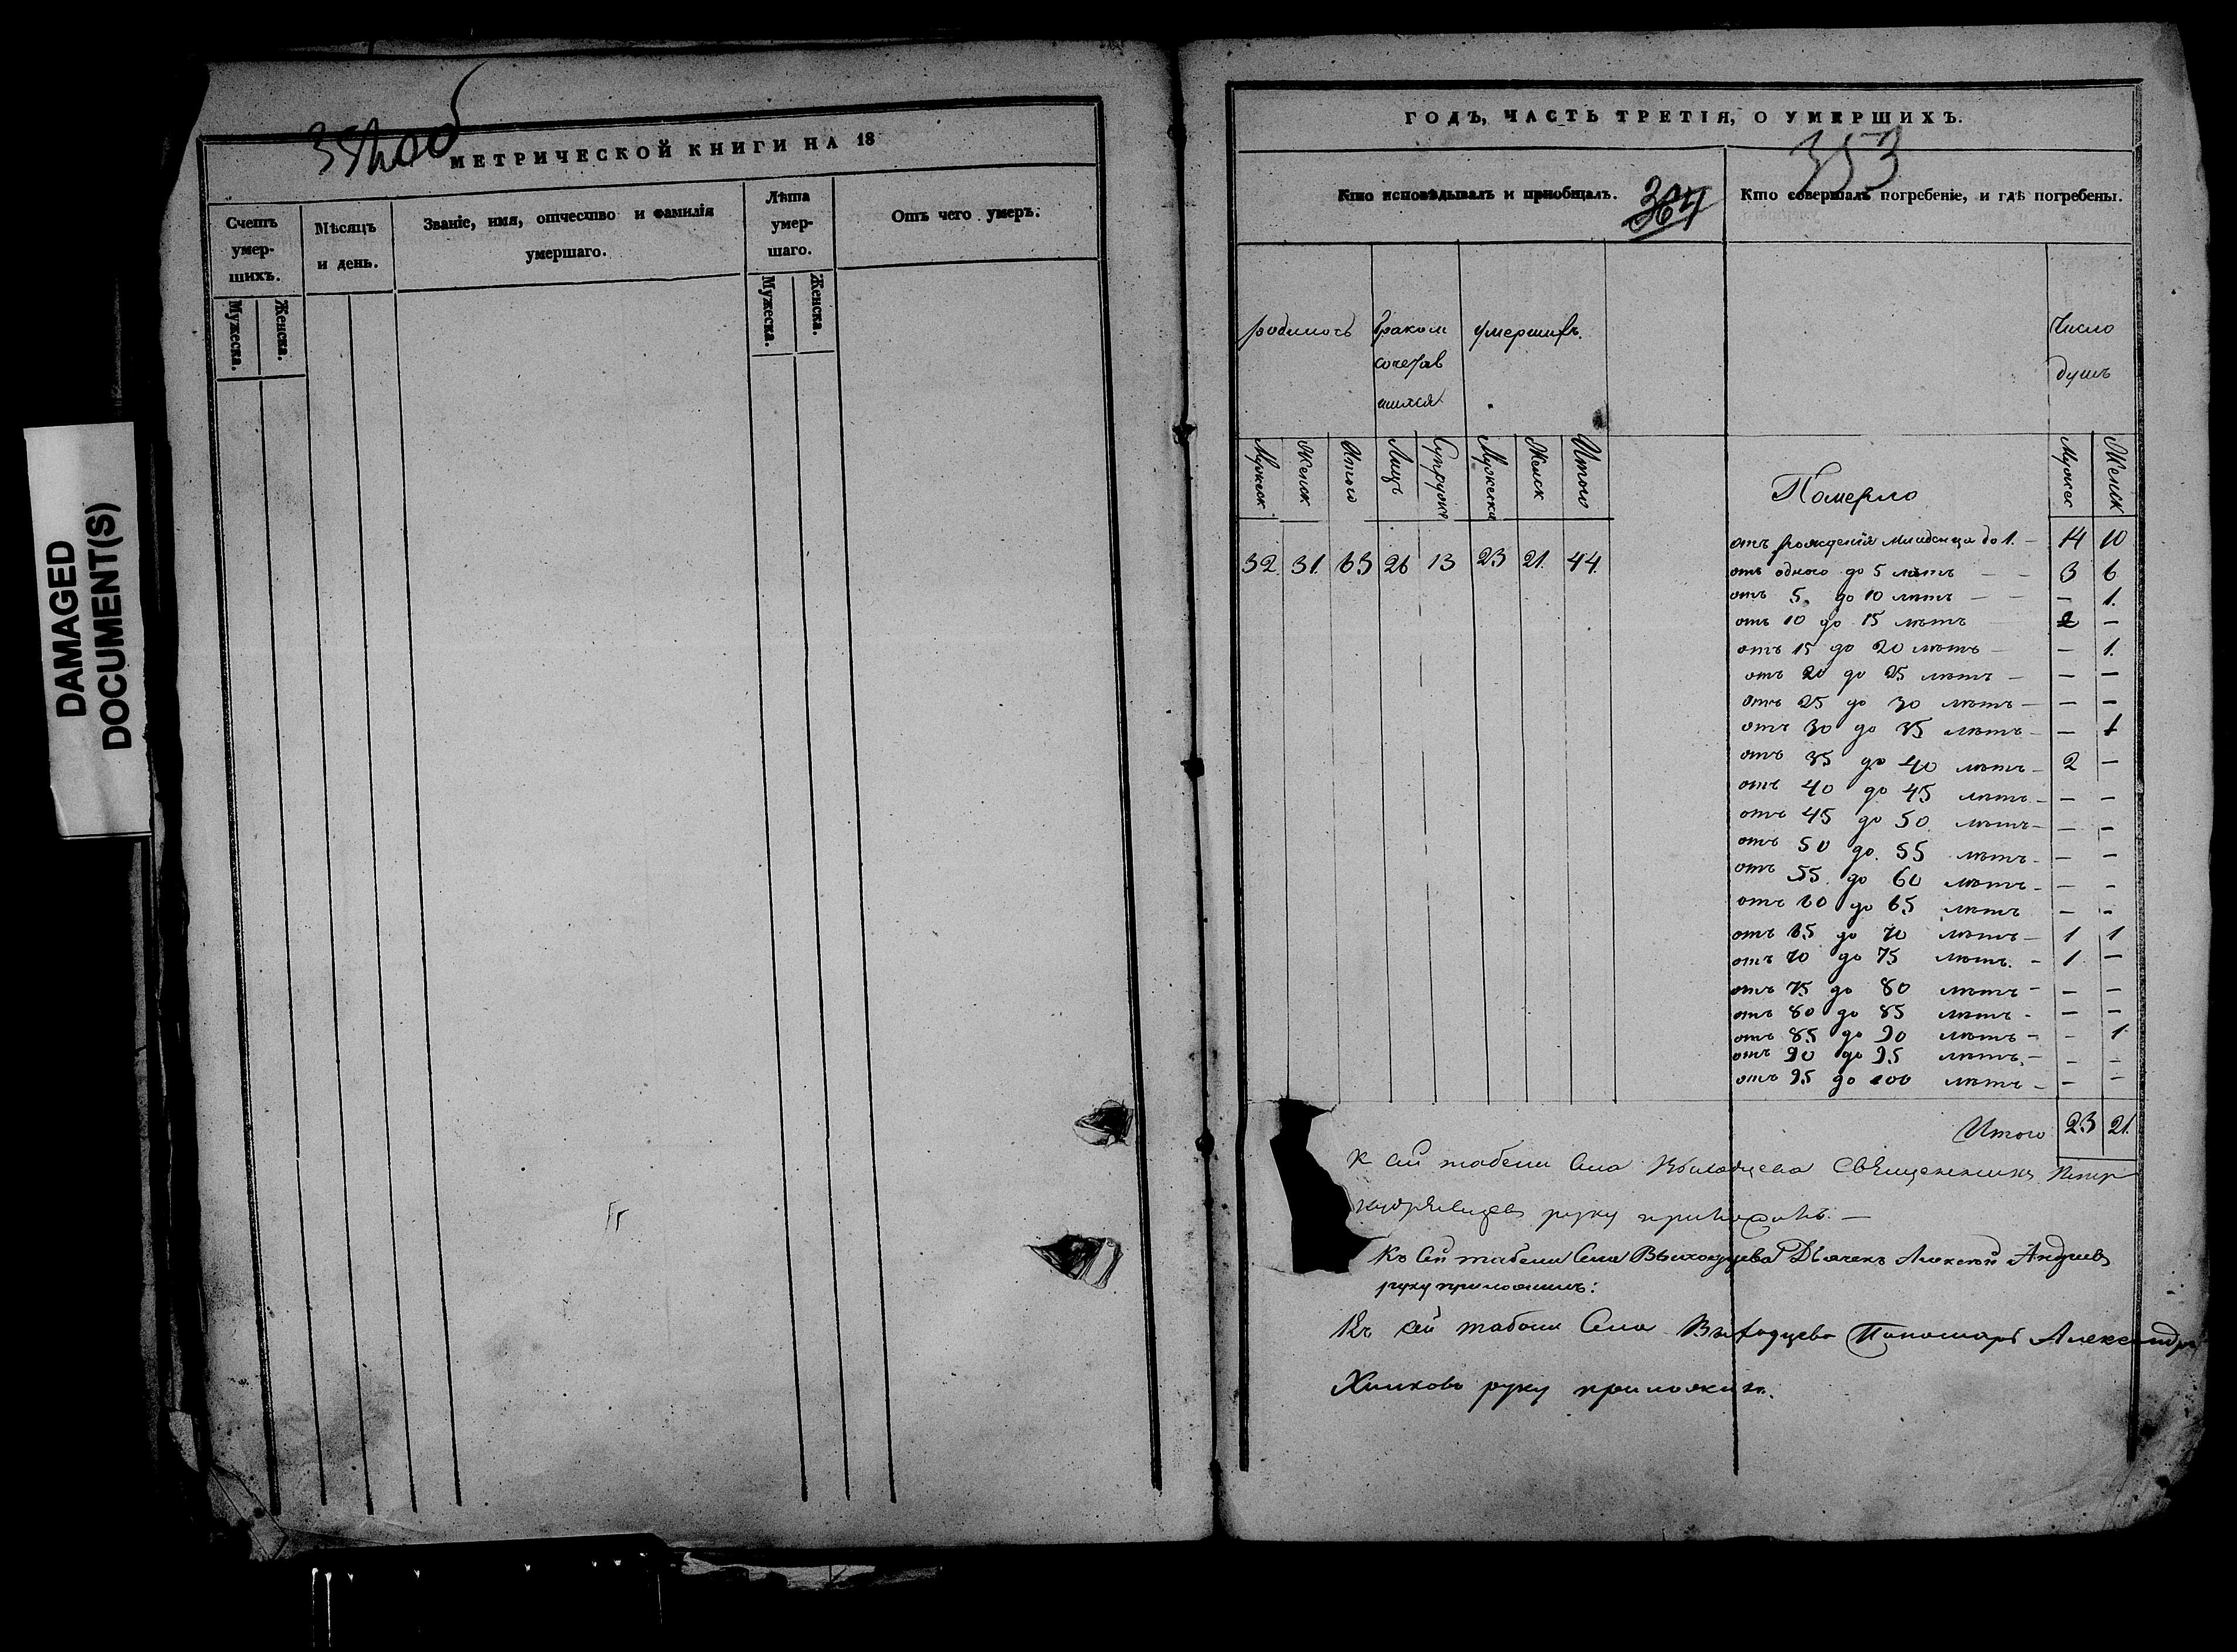 DAMAGED
DOCUMENT(S)
352об
МЕТРИЧЕСКОЙ КНИГИ НА 18
Счетъ умершихъ.
Мѣсяцъ и день.
Званіе, имя, отчество и фамилія умершаго.
Лѣта умершаго.
Отъ чего умеръ.
Мужеска.
Женска.
Мужеска.
Женска.
ГОДЪ, ЧАСТЬ ТРЕТІЯ, О УМЕРШИХЪ.
353
Кто исповѣдывалъ и пріобщалъ.
Кто совершалъ погребеніе, и гдѣ погребены.
родилось
браком
сочетав
шихся
умершихъ.
Число
душъ
Мужеск
Женск
Итого
Лицъ
Супруже
Мужеска
Женск
Итого
Померло
Мужес
Женск
32. 31. 63 26 13 23 21. 44.
отъ рожденія младенца до 1. — 14 10
отъ одного до 5 лѣтъ — — 3 6
отъ 5. до 10 лѣтъ — — — 1.
отъ 10 до 15 лѣтъ 2 —
отъ 15 до 20 лѣтъ — — 1.
отъ 20 до 25 лѣтъ — — —
отъ 25 до 30 лѣтъ — — —
отъ 30 до 35 лѣтъ — — 1
отъ 35 до 40 лѣтъ — 2 —
отъ 40 до 45 лѣтъ — — —
отъ 45 до 50 лѣтъ — — —
отъ 50 до 55 лѣтъ — — —
отъ 55 до 60 лѣтъ — — —
отъ 60 до 65 лѣтъ — —
отъ 65 до 70 лѣтъ — 1 1
отъ 70 до 75 лѣтъ. — 1 —
отъ 75 до 80 лѣтъ — — —
отъ 80 до 85 лѣтъ — — —
отъ 85 до 90 лѣтъ — — 1
отъ 90 до 95 лѣтъ — — —
отъ 95 до 100 лѣтъ — — —
Итого 23 21.
К сей табели Села Выходцева Священникъ Петр
Кудрявцевъ руку приложилъ. —
Къ Сей табели Села Выходцева Дьячекъ Алексѣй Андреевъ
руку приложилъ:
Къ сей табели Села Выходцева Пономарь Александръ
Хилковъ руку приложилъ.